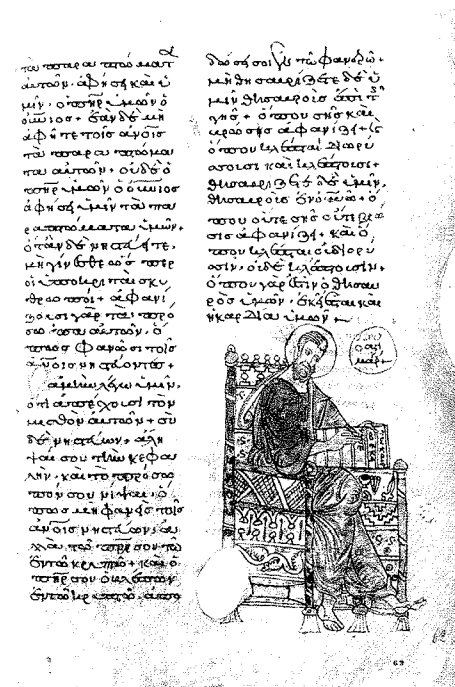 τὰ παραπτώματ
αὐτῶν· ἀφήσει καὶ ὑ
μῖν, ὁ πηρ ὑμῶν ὁ
οὐνιος· ἐὰν δὲ μὴ
ἀφῆτε τοῖς ἀνοις
τὰ παραπτώμα
τα αὐτῶν· οὐδὲ ὁ
πηρ ὑμῶν ὁ οὐνιος
ἀφήσει ὑμῖν τὰ πα
ραπτώματα ὑμῶν·
ὅταν δὲ νηστεύητε,
μὴ γίνεσθε ὥσπερ
οἱ ὑποκριταὶ σκυ
θρωποί· ἀφανί
ζουσι γὰρ τὰ πρό
σωπα αὐτῶν, ὅ
πως φανῶσι τοῖς
ἀνοις νηστεύοντες·
ἀμὴν λέγω ὑμῖν,
ὅτι ἀπέχουσι τὸν
μισθὸν αὐτῶν· σὺ
δὲ νηστεύων, ἄλει
ψαί σου τὴν κεφα
λὴν, καὶ τὸ πρόσω
πόν σου νίψαι· ὅ
πως μὴ φανῆς τοῖς
ἀνοις νηστεύων, ἀλ
λὰ τῶ πρι σου τῶ
ἐν τῶ κρυπτῶ· καὶ ὁ
πηρ σου ὁ βλέπων
ἐν τῶ κρυπτῶ, ἀπο
δώσει σοι ἐν τῶ φανερῶ·
μὴ θησαυρίζετε δὲ ὑ
μῖν θησαυροὺς ἐπὶ τῆς
γῆς· ὅπου σὴς καὶ
βρῶσις ἀφανίζει· καὶ
ὅπου κλέπται διορύ
σουσι καὶ κλέπτουσι·
θησαυρίζετε δὲ ὑμῖν,
θησαυροὺς ἐν οὐνω· ὅ
που οὔτε σὴς οὔτε βρῶ
σις ἀφανίζει· καὶ ὅ
που κλέπται οὐ διορύ
σουσιν, οὐδὲ κλέπτουσιν·
ὅπου γάρ ἐστιν ὁ θησαυ
ρὸς ὑμῶν, ἐκεῖ ἔσται καὶ
ἡ καρδία ὑμῶν·